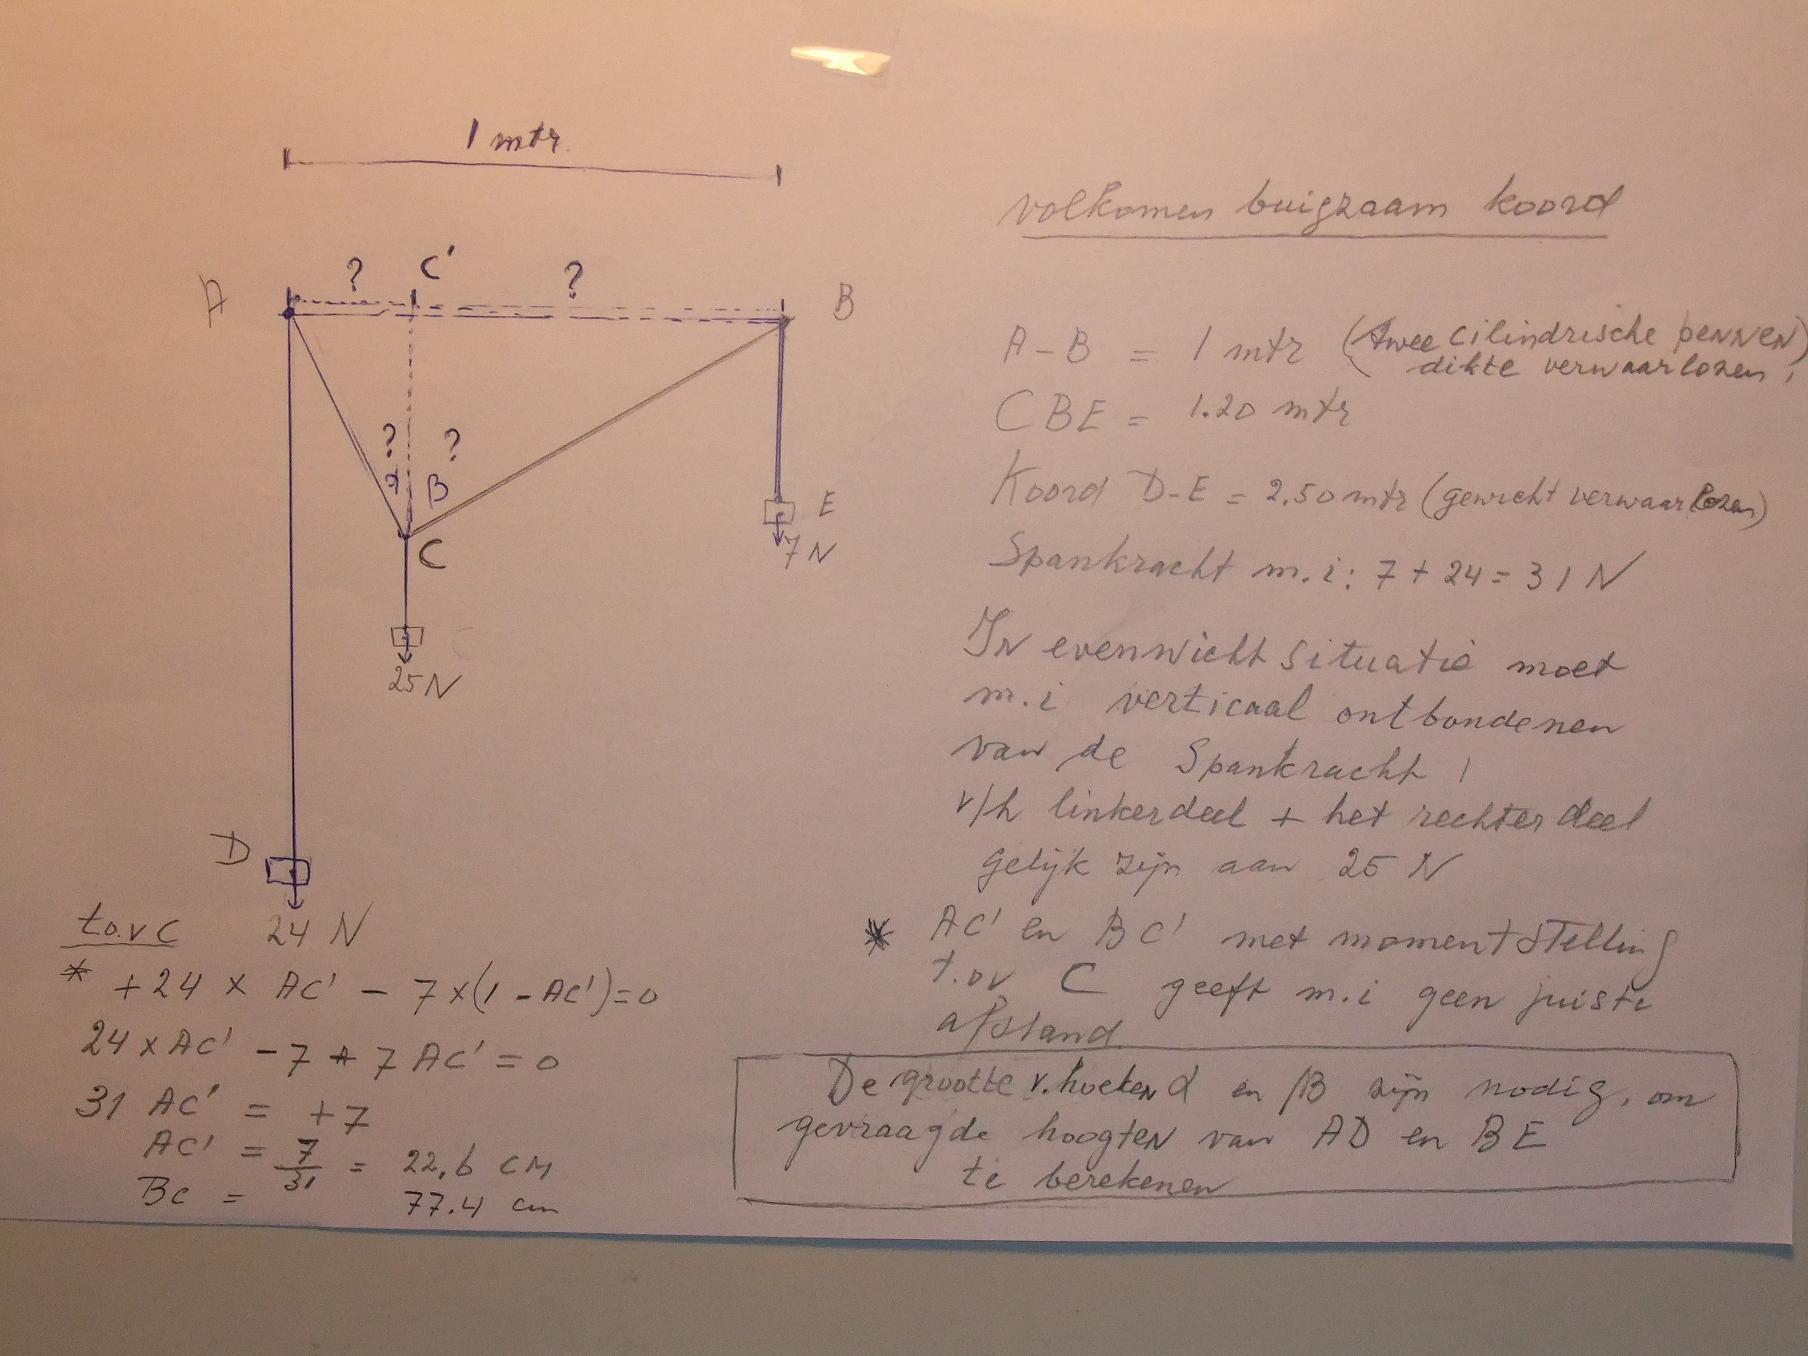 1 mtr.
? C' ?
A B
? ?
α B
C
E
7 N
25 N
D
24 N
t.o.v C
* +24 × AC' - 7×(1-AC')=0
24 × AC' - 7 + 7 AC' = 0
31 AC' = +7
AC' = 7/31 = 22,6 CM
BC = 77.4 cm
volkomen buigzaam koord
A-B = 1 mtr (twee cilindrische pennen)
dikte verwaarlozen,
CBE = 1.20 mtr
Koord D-E = 2.50 mtr (gewicht verwaarlozen)
Spankracht m.i: 7+24=31 N
In evenwicht situatie moet
m.i verticaal ontbondenen
van de Spankracht !
v/h linkerdeel + het rechter deel
gelijk zijn aan 25 N
* AC' en BC' met momentstelling
t.ov C geeft m.i geen juiste
afstand
De grootte v. hoeken α en β zijn nodig, om
gevraagde hoogten van AD en BE
te berekenen